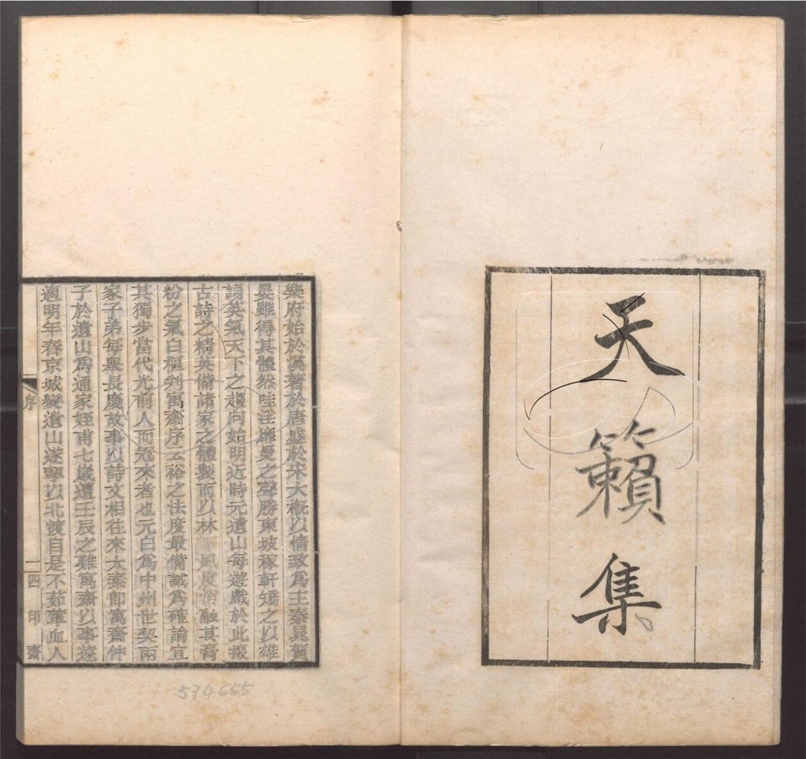 天籟集
樂府始於漢著於唐盛於宋大概以情致爲主秦晁賀
晏雖得其體然哇淫靡曼之聲勝東坡稼軒矯之以雄
詞英氣天下之趨向始明近時元遺山每遊戲於此掇
古詩之精英備諸家之體製而以林下風度消融其膏
粉之氣白樞判寓齋序云裕之法度最備誠爲確論宜
其獨步當代光前人而冠來者也元白爲中州世契兩
家子弟每舉長慶故事以詩文相往來太素即寓齋仲
子於遺山爲通家姪甫七歲遭壬辰之難寓齋以事遠
適明年春京城變遺山遂挈以北渡自是不茹葷血人
序
一
四印齋
574665